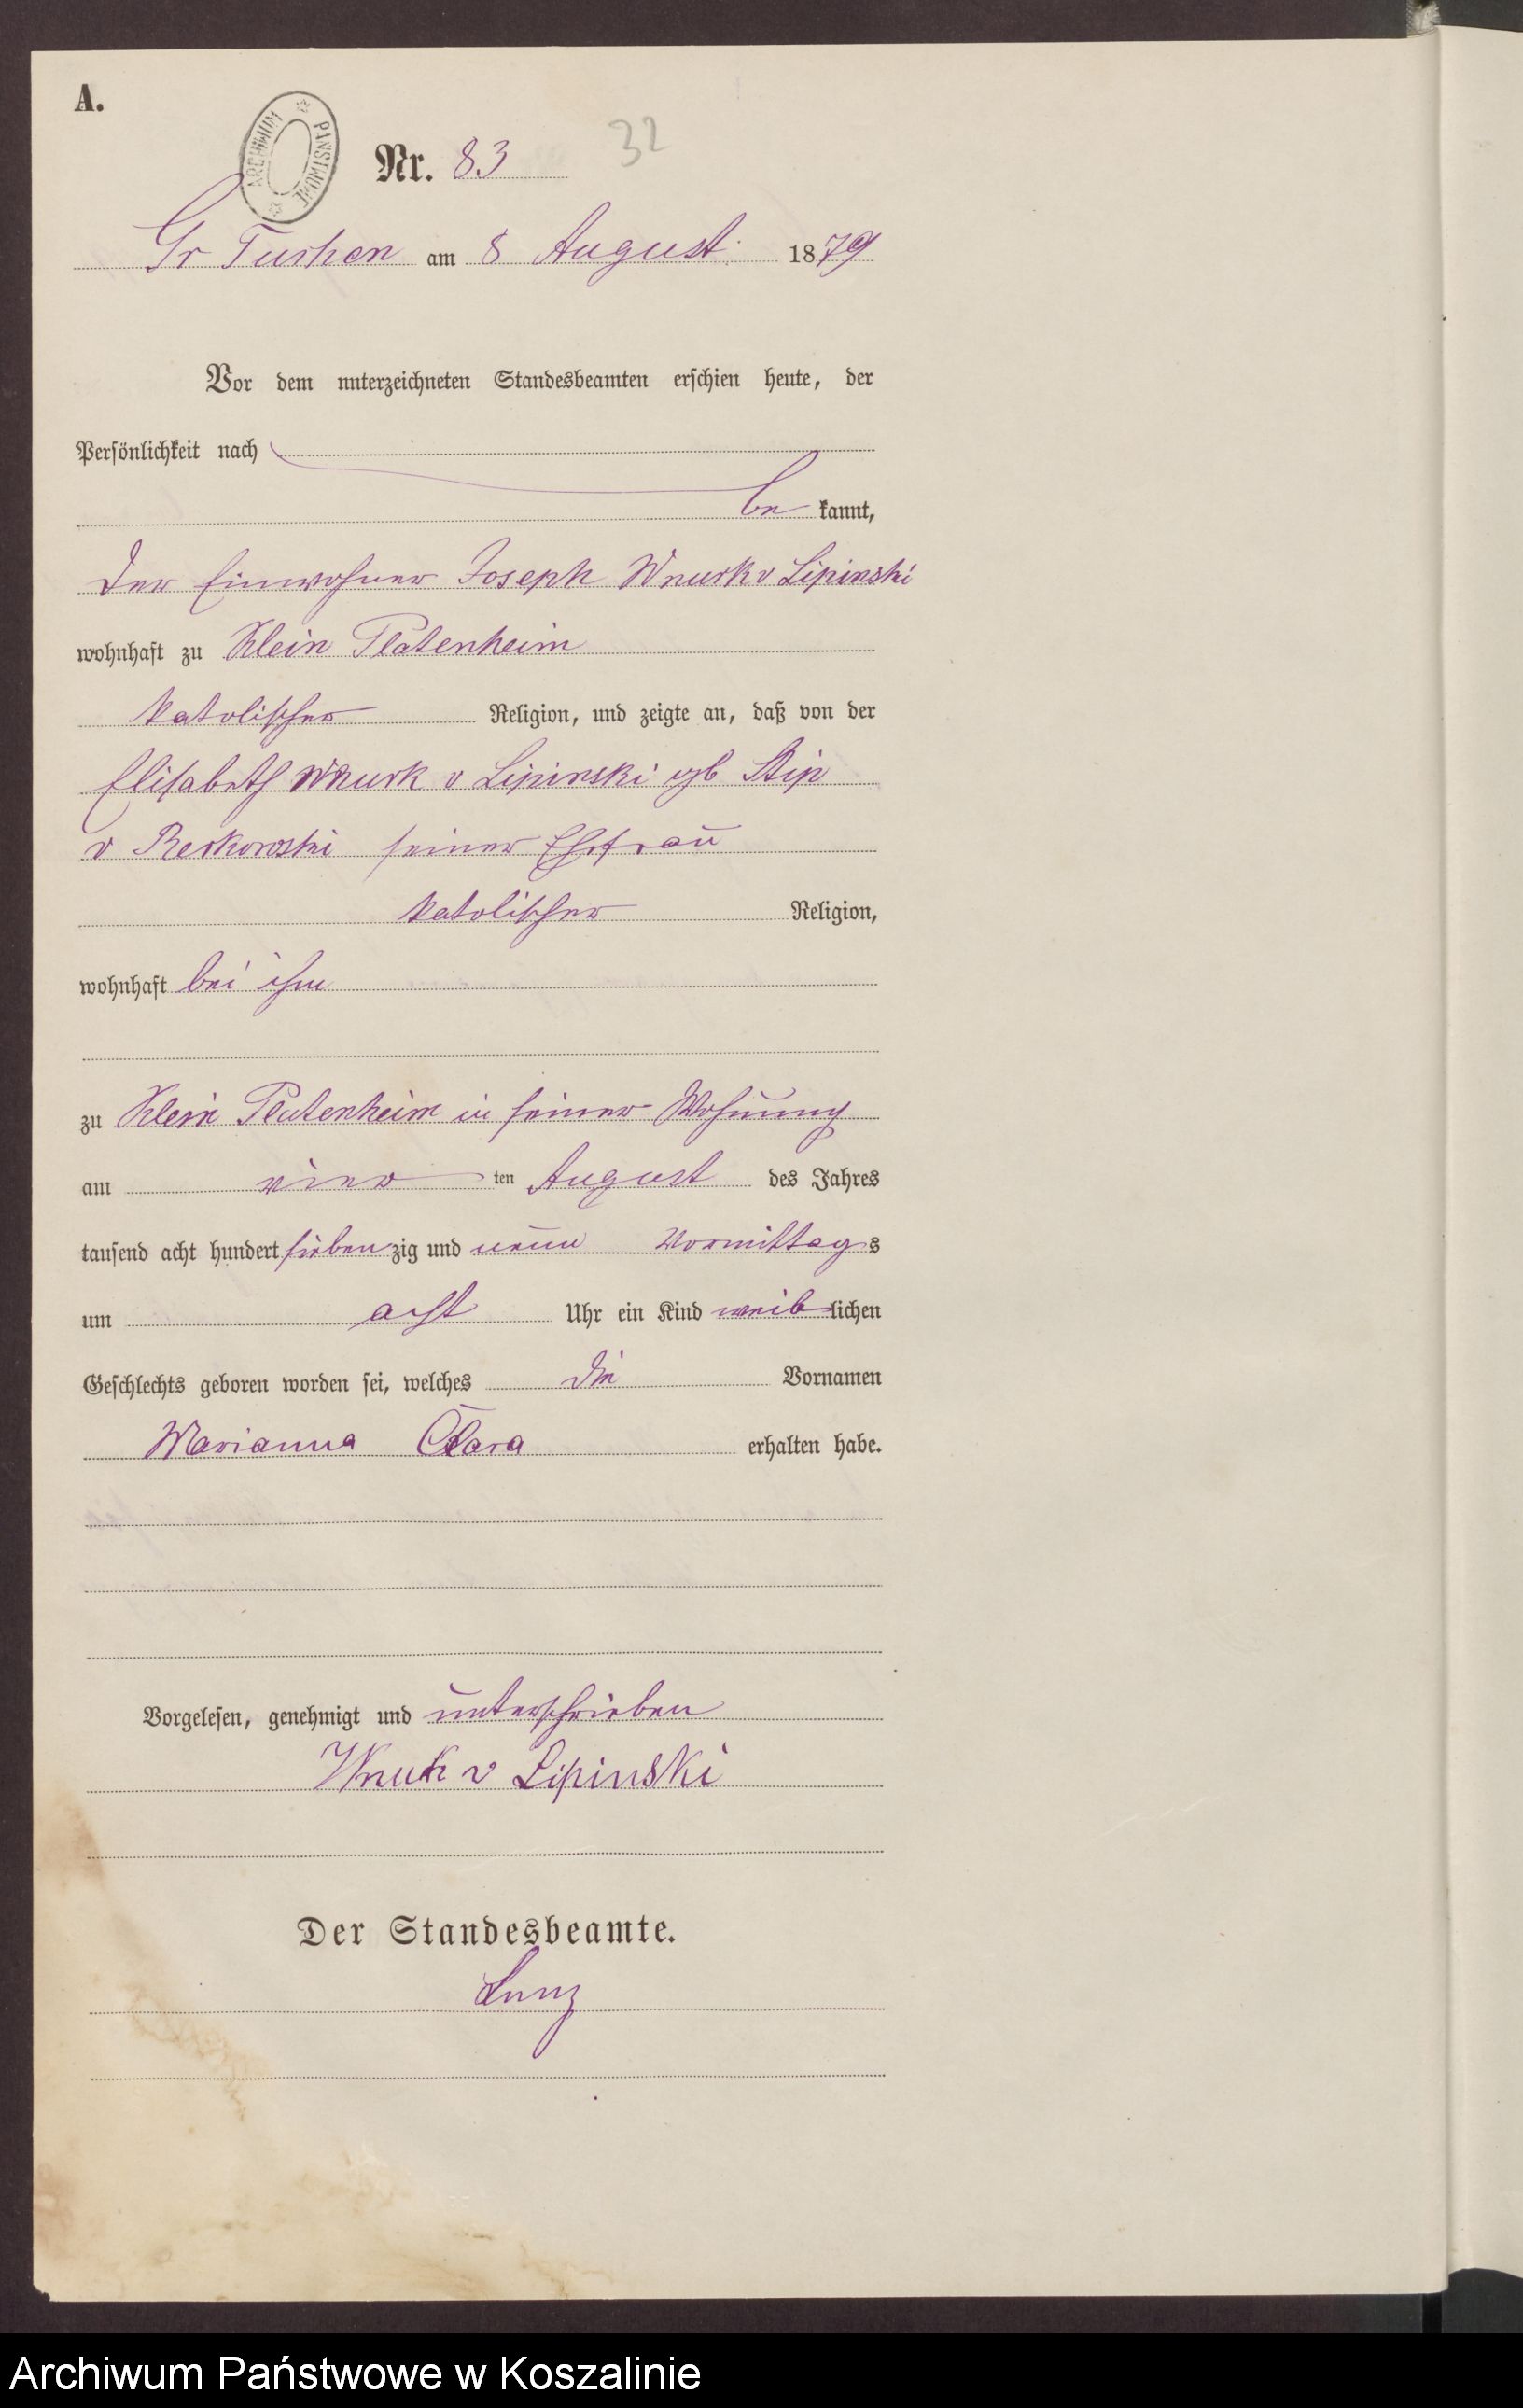 A.
ARCHIWUM PAŃSTWOWE
Nr. 83 32
Gr Tuchen am 8 August 1879
Vor dem unterzeichneten Standesbeamten erschien heute, der
Persönlichkeit nach
be kannt,
der Einwohner Joseph Wnuck v Lipinski
wohnhaft zu Klein Platenheim
katolischer Religion, und zeigte an, daß von der
Elisabeth Wnuck v Lipinski gb Stip
v Reckowski seiner Ehefrau
katolischer Religion,
wohnhaft bei ihm
zu Klein Platenheim in seiner Wohnung
am vier ten August des Jahres
tausend acht hundert sieben zig und neun Vormittag s
um acht Uhr ein Kind weib lichen
Geschlechts geboren worden sei, welches die Vornamen
Marianna Clara erhalten habe.
Vorgelesen, genehmigt und unterschrieben
Wnuk v Lipinski
Der Standesbeamte.
Archiwum Państwowe w Koszalinie